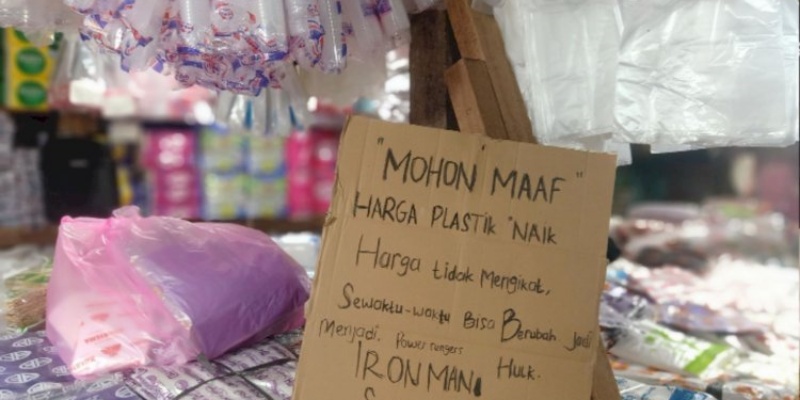 "MOHON MAAF"
HARGA PLASTIK "NAIK
Harga tidak Mengikat,
Sewaktu-waktu Bisa Berubah Jadi
Menjadi. Power rangers
IRON MAN Hulk.